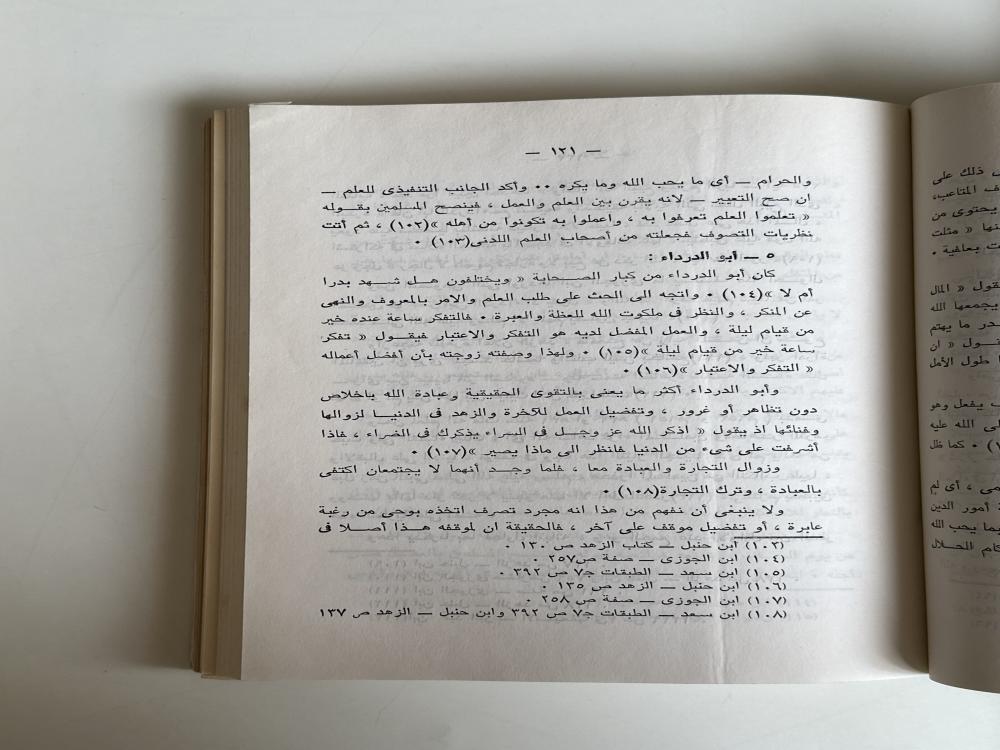 — ١٢١ —
والحرام — أى ما يحب الله وما يكره ٠٠ وأكد الجانب التنفيذى للعلم —
ان صح التعبير — لانه يقرن بين العلم والعمل ، فينصح المسلمين بقوله
« تعلموا العلم تعرفوا به ، واعملوا به تكونوا من أهله »(١٠٢) ، ثم أتت
نظريات التصوف فجعلته من أصحاب العلم اللدنى(١٠٣) ٠
٥ — أبو الدرداء :
كان أبو الدرداء من كبار الصحابة « ويختلفون هل شهد بدرا
أم لا »(١٠٤) ٠ واتجه الى الحث على طلب العلم والامر بالمعروف والنهى
عن المنكر ، والنظر فى ملكوت الله للعظة والعبرة ٠ فالتفكر ساعة عنده خير
من قيام ليلة ، والعمل المفضل لديه هو التفكر والاعتبار فيقول « تفكر
ساعة خير من قيام ليلة »(١٠٥) ٠ ولهذا وصفته زوجته بأن أفضل أعماله
« التفكر والاعتبار »(١٠٦) ٠
وأبو الدرداء أكثر ما يعنى بالتقوى الحقيقية وعبادة الله باخلاص
دون تظاهر أو غرور ، وتفضيل العمل للآخرة والزهد فى الدنيا لزوالها
وفنائها اذ يقول « اذكر الله عز وجل فى السراء يذكرك فى الضراء ، فاذا
أشرفت على شىء من الدنيا فانظر الى ماذا يصير »(١٠٧) ٠
وزوال التجارة والعبادة معا ، فلما وجد أنهما لا يجتمعان اكتفى
بالعبادة ، وترك التجارة(١٠٨) ٠
ولا ينبغى أن نفهم من هذا انه مجرد تصرف اتخذه بوحى من رغبة
عابرة ، أو تفضيل موقف على آخر ، فالحقيقة ان لموقفه هذا أصلا فى
(١٠٣) ابن حنبل — كتاب الزهد ص ١٣٠ ٠
(١٠٤) ابن الجوزى — صفة ص٢٥٧ ٠
(١٠٥) ابن سعد — الطبقات ج٧ ص ٣٩٢ ٠
(١٠٦) ابن حنبل — الزهد ص ١٣٥ ٠
(١٠٧) ابن الجوزى — صفة ص ٢٥٨ ٠
(١٠٨) ابن سعد — الطبقات ج٧ ص ٣٩٢ وابن حنبل — الزهد ص ١٣٧
ذلك على
المتاعب،
يحتوى من
« مثلت
بعافية ٠
« المال
يجمعها الله
ما يهتم
« ان
طول الأمل
يفعل وهو
الله عليه
٠ كما ظل
، أى لم
أمور الدين
يحب الله
الحلال